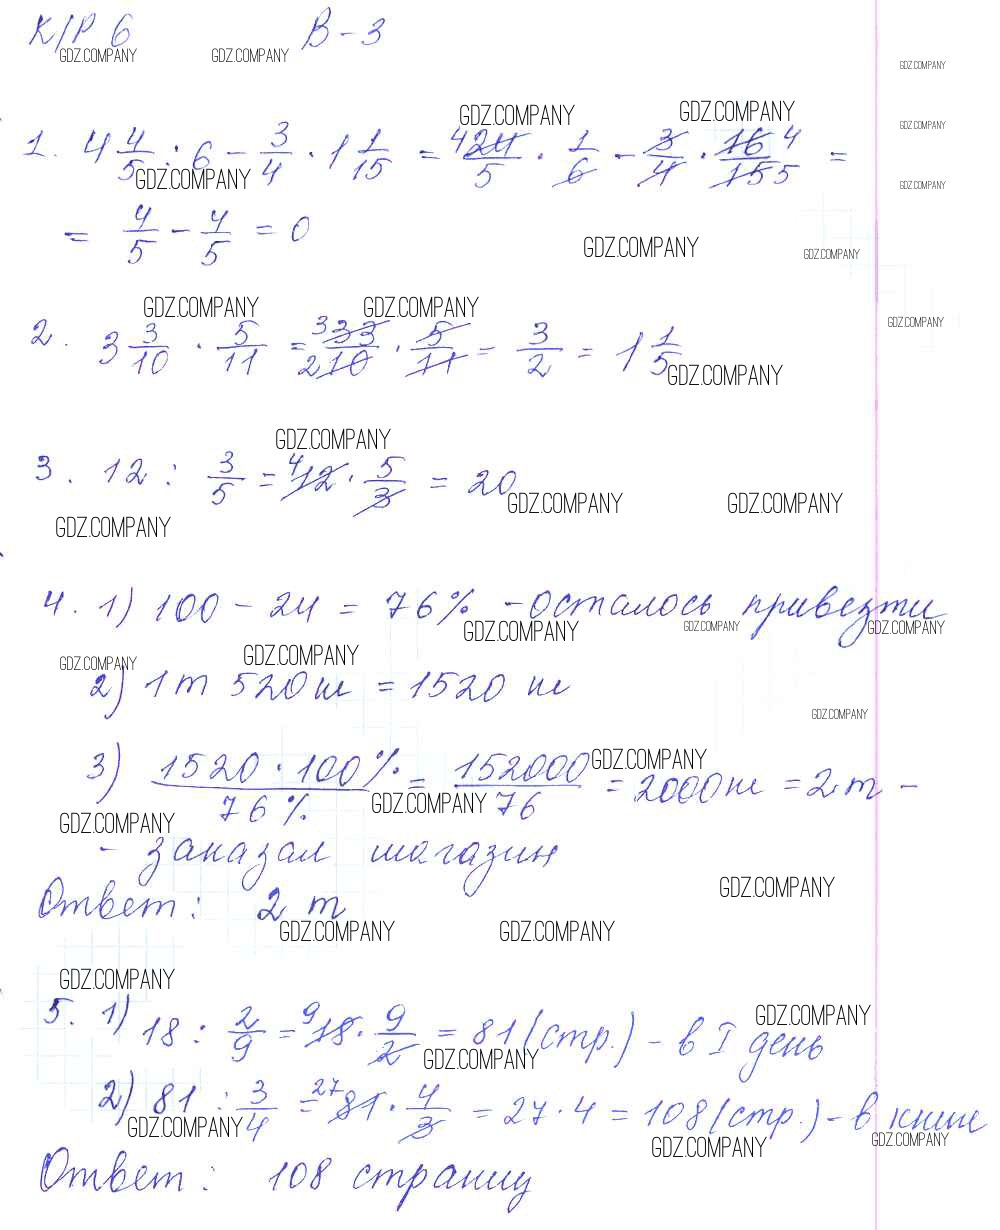 К/Р 6 В-3
GDZ.COMPANY GDZ.COMPANY GDZ.COMPANY
GDZ.COMPANY GDZ.COMPANY GDZ.COMPANY
1. 4 4/5 : 6 - 3/4 · 1 1/15 = 4 24/5 · 1/6 - 3/4 · 16/15 4 5 =
GDZ.COMPANY GDZ.COMPANY
= 4/5 - 4/5 = 0
GDZ.COMPANY GDZ.COMPANY
GDZ.COMPANY GDZ.COMPANY GDZ.COMPANY
2. 3 3/10 · 5/11 = 3 33/2 10 · 5/11 = 3/2 = 1 1/5
GDZ.COMPANY
GDZ.COMPANY
3. 12 : 3/5 = 4 12 · 5/3 = 20
GDZ.COMPANY GDZ.COMPANY
GDZ.COMPANY
4. 1) 100 - 24 = 76% - осталось привезти
GDZ.COMPANY GDZ.COMPANY GDZ.COMPANY
GDZ.COMPANY GDZ.COMPANY
2) 1 т 520 кг = 1520 кг
GDZ.COMPANY
3) 1520 · 100%/76% = 152000/76 = 2000 кг = 2 т -
GDZ.COMPANY
GDZ.COMPANY GDZ.COMPANY
- заказал магазин
GDZ.COMPANY
Ответ: 2 т
GDZ.COMPANY GDZ.COMPANY
GDZ.COMPANY
5. 1) 18 : 2/9 = 9 18 · 9/2 = 81 (стр.) - в I день
GDZ.COMPANY GDZ.COMPANY
2) 81 : 3/4 = 27 81 · 4/3 = 27 · 4 = 108 (стр.) - в книге
GDZ.COMPANY GDZ.COMPANY GDZ.COMPANY
Ответ: 108 страниц